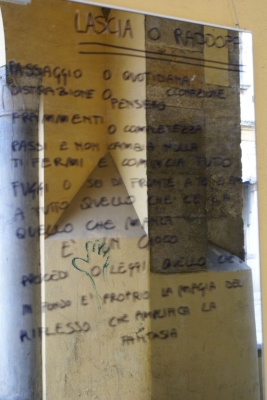 LASCIA O RADDOPPI
PASSAGGIO O QUOTIDIANA
DISTRAZIONE O CONNESSIONE
PENSIERO
FRAMMENTI
O COMPLETEZZA
PASSI E NON CAMBIA NULLA
TI FERMI E COMINCIA TUTTO
FUGGI O SEI DI FRONTE A TE E
A TUTTO QUELLO CHE C'È DA
QUELLO CHE MANCA
E' UN GIOCO
PROCEDI O LEGGI QUELLO CHE
IN FONDO E' PROPRIO LA MAGIA DEL
RIFLESSO CHE AMPLIFICA LA
FANTASIA